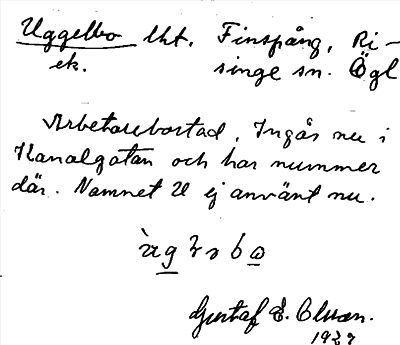 Uggelbo lht. Finspång, Ri-
ek. singe sn. Ögl
Arbetarebostad. Ingår nu i
Kanalgatan och har nummer
där. Namnet U ej använt nu.
Gustaf E. Olsson.